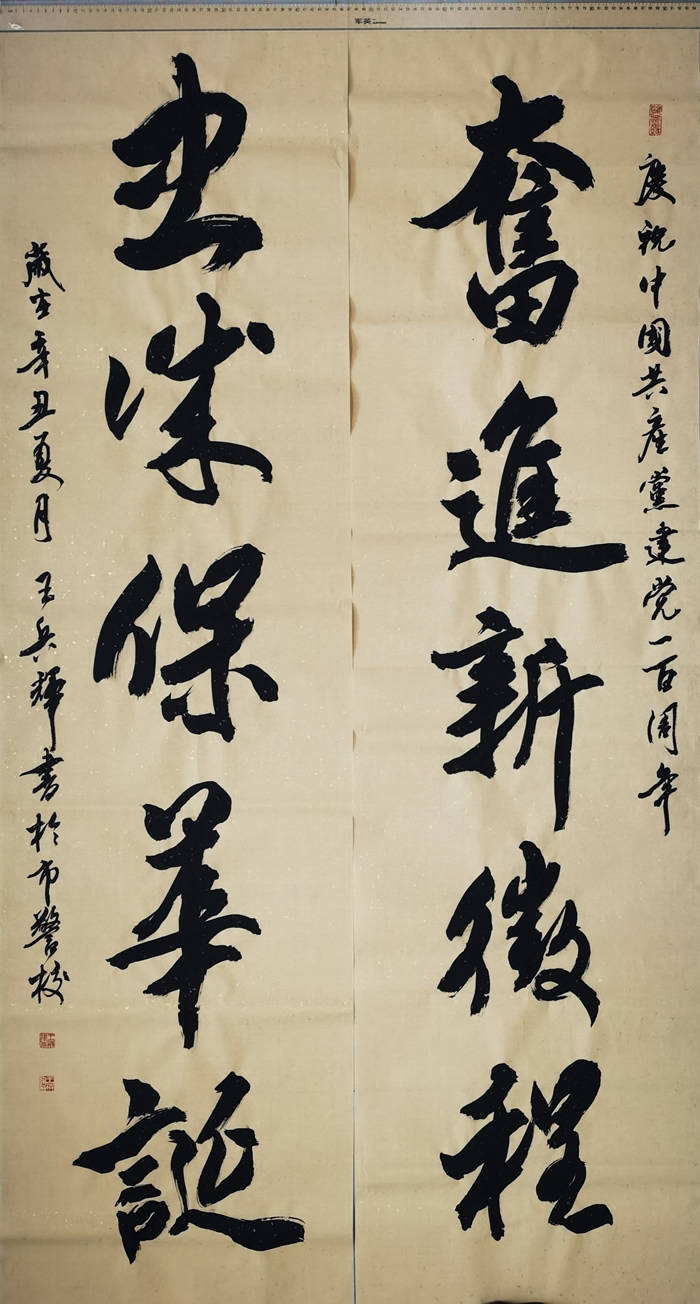 慶祝中國共産黨建党一百周年
奮進新徵程
忠诚保華誕
歲在辛丑夏月王兵輝書於市警校